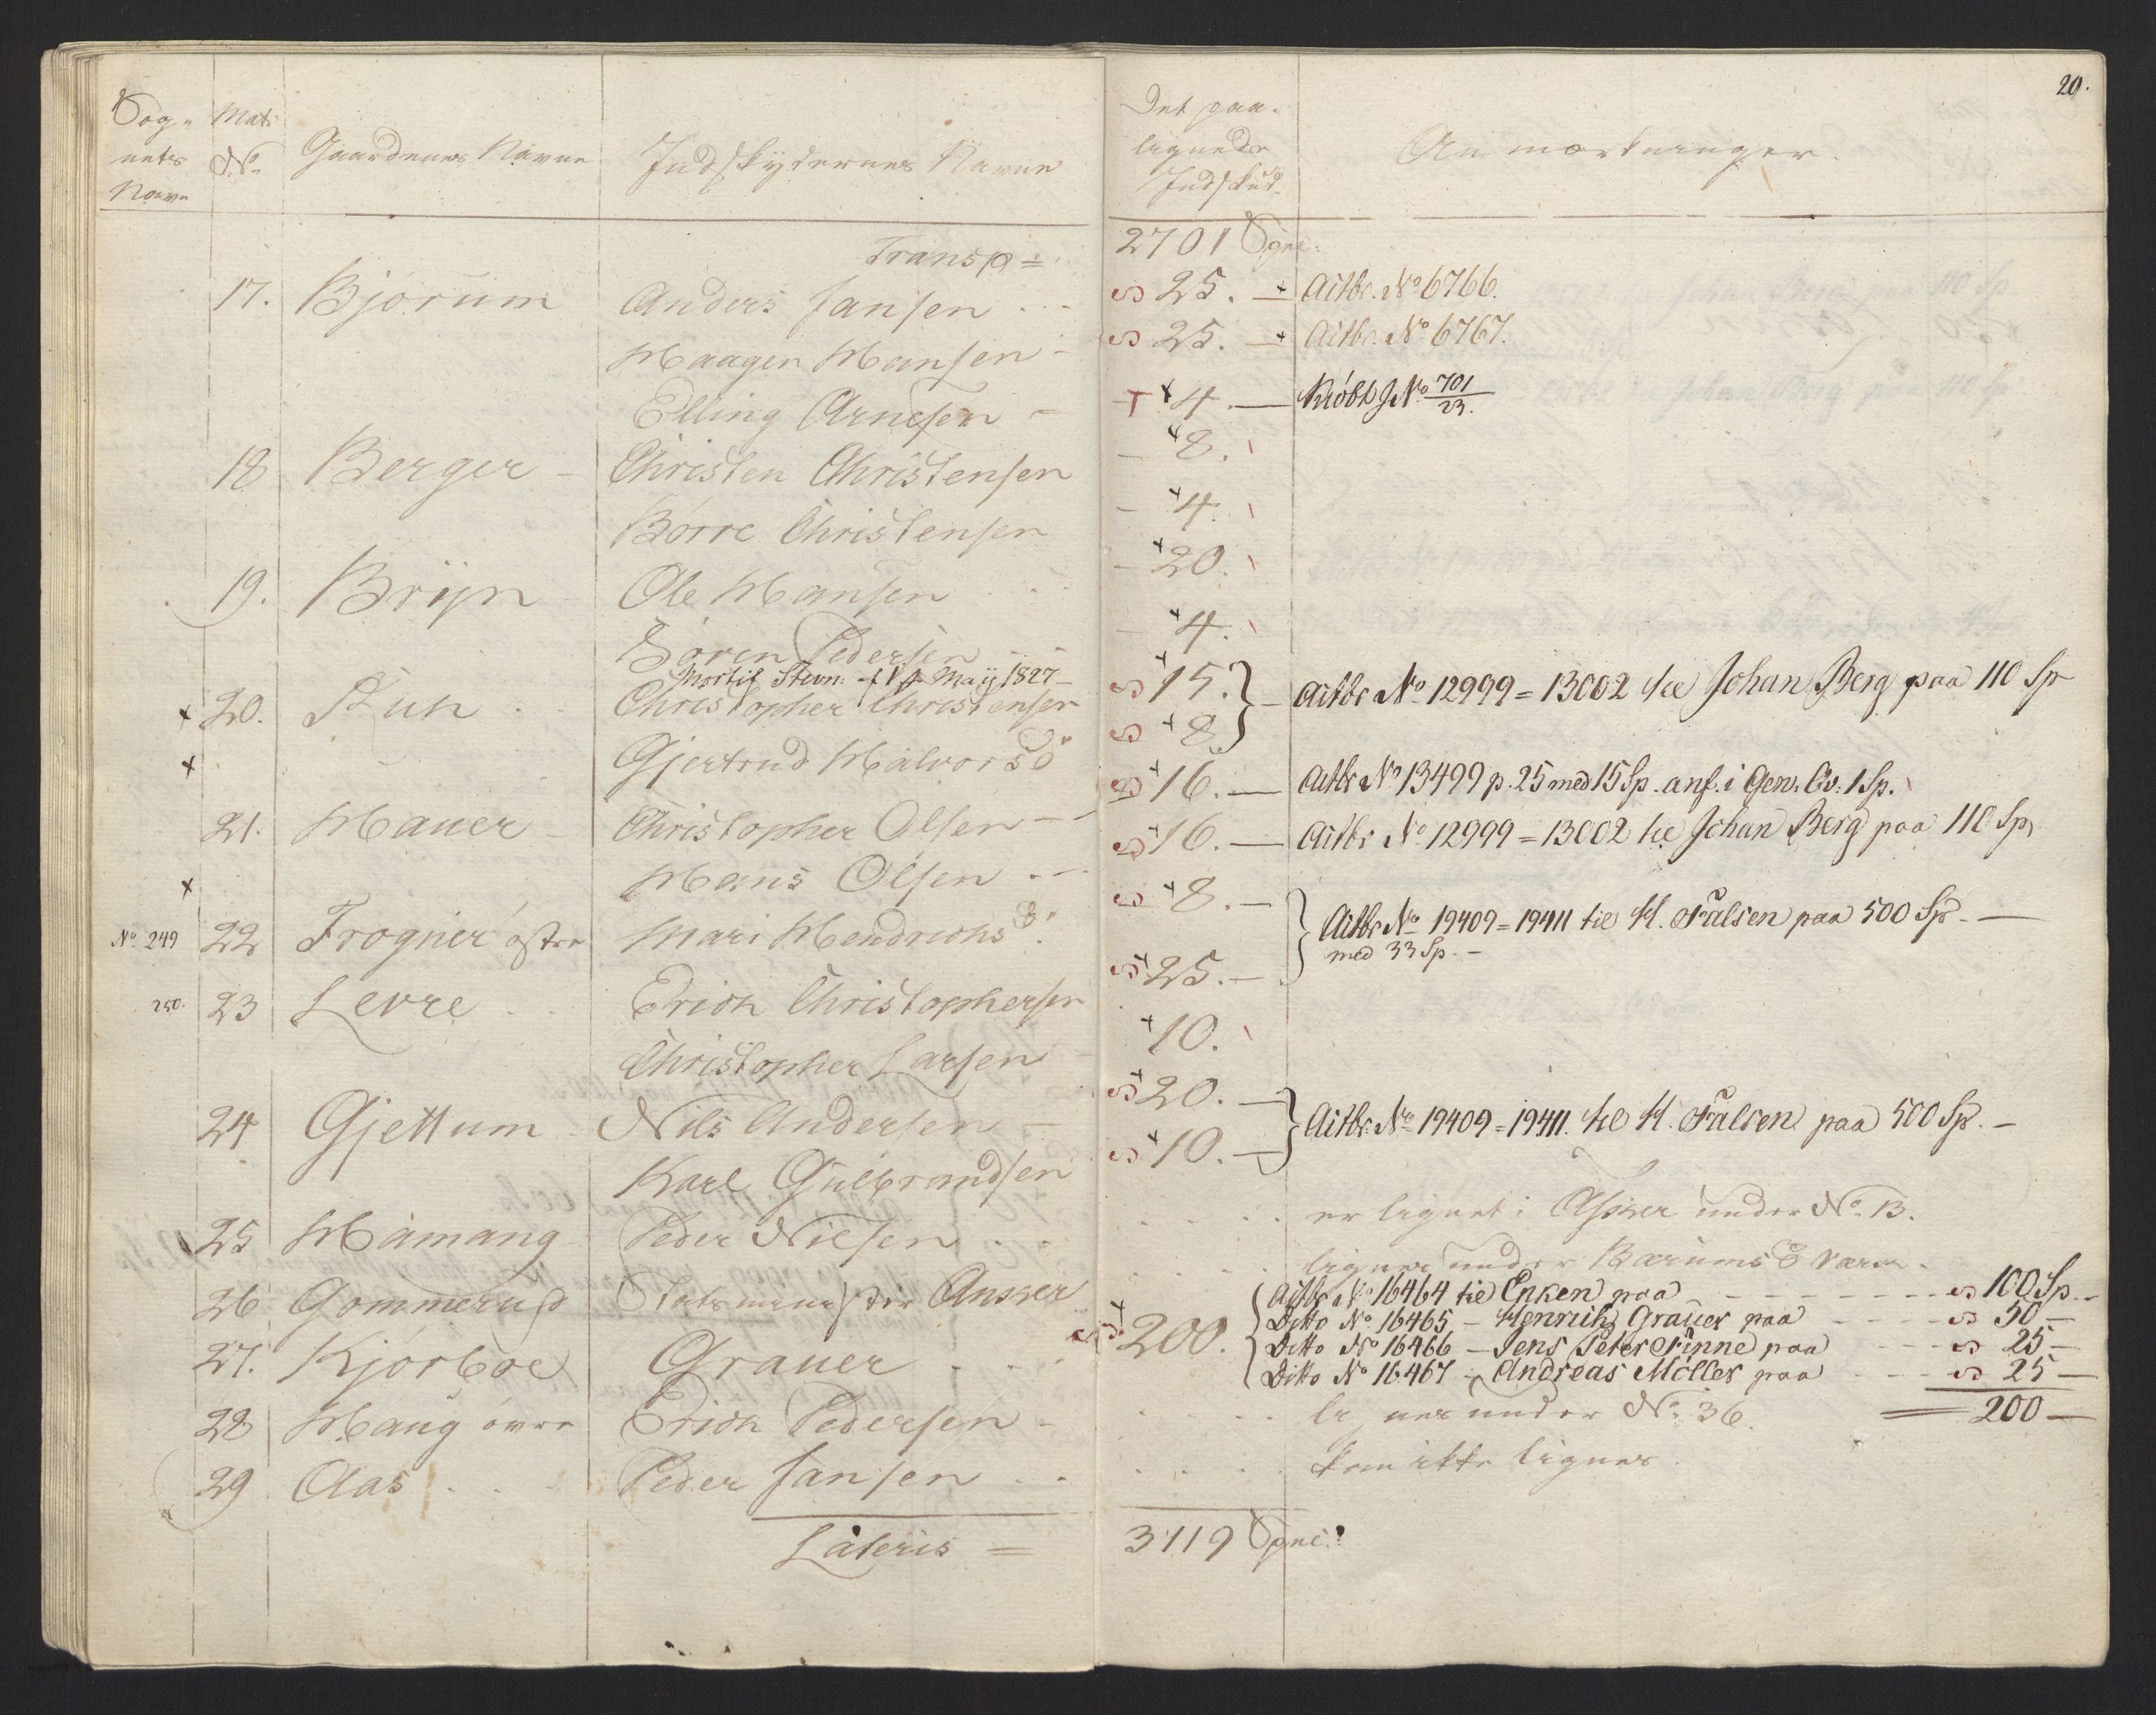 Sog- Mat:
nets No Gaardenes Navne Indskydernes Navne
Navn
Transp =
17. Bjørum Anders Jansen
Haagen Hansen -
Elling Arnesen -
18 Berger - Christen Christensen
Børre Christensen
19. Brÿn Ole Hansen
Søren Pedersen
Mortif Stevn: May 1827
x 20. Christopher Christensen
x Gjertrud Halvorsd
21. Hauer - Christopher Olsen -
x Hans Olsen
No 249 22 Frogner østre Mari Hendrichsd.
250. 23 Levre Erich Christophersen
Christopher Larsen
24 Gjettum Nils Andersen -
Karl Gulbrandsen
25 Hamang Peder Nilsen
26 Gommerud Statsminister Ancher
27. Kjørboe Grauer
28 Haug øvre Erich Pedersen -
29 Aas Peder Jansen
Lateris =
20.
Det paa-
lignede
Indskud Anmærkninger.
2701 Spec:
25. - x Actbr. No 6766.
25. - x Actbr. No 6767.
x 4. - No 701/23.
x 8.
x 4.
x 20.
x 4.
x 15. } - Actbr No 12999 = 13002 til Johan Berg paa 110 Sp
x 8.
x 16. - Actbr No 13499 p. 25 med 15 Sp. anf. i Gen. 1 Sp.
x 16. - Actbr No 12999 = 13002 til Johan Berg paa 110 Sp
x 8. - } Actbr No 19409 = 19411 til H. Falsen paa 500 Sp -
med 33 Sp. -
x 25. -
x 10.
x 20. - } Actbr. No 19409 = 19411. til H. Falsen paa 500 Sp. -
x 10. -
er lignet i Asker under No 13.
lignes under Bærums Værk.
Actbr No 16464 til Enken paa 100 Sp. -
x 200. Ditto No 16465 - Henrich Grauer paa 50 -
Ditto No 16466 - Jens Peter Finne paa 25 -
Ditto No 16467 - Andreas Möller paa 25 -
lignes under No 36. 200 -
kan ikke lignes.
3119 Spec: